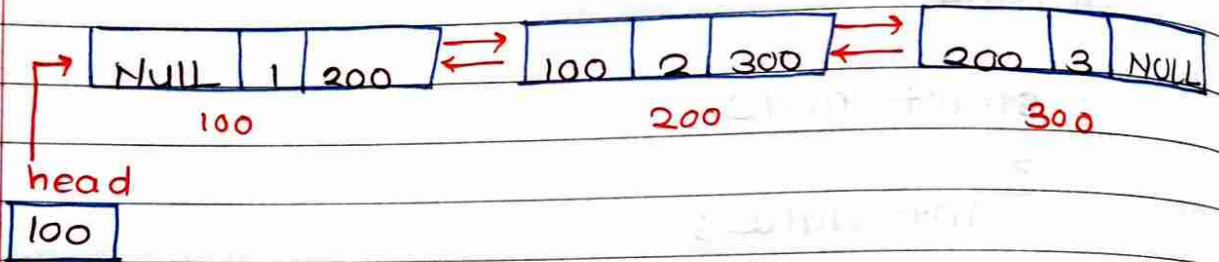 NULL 1 200 100 2 300 200 3 NULL
100 200 300
head
100